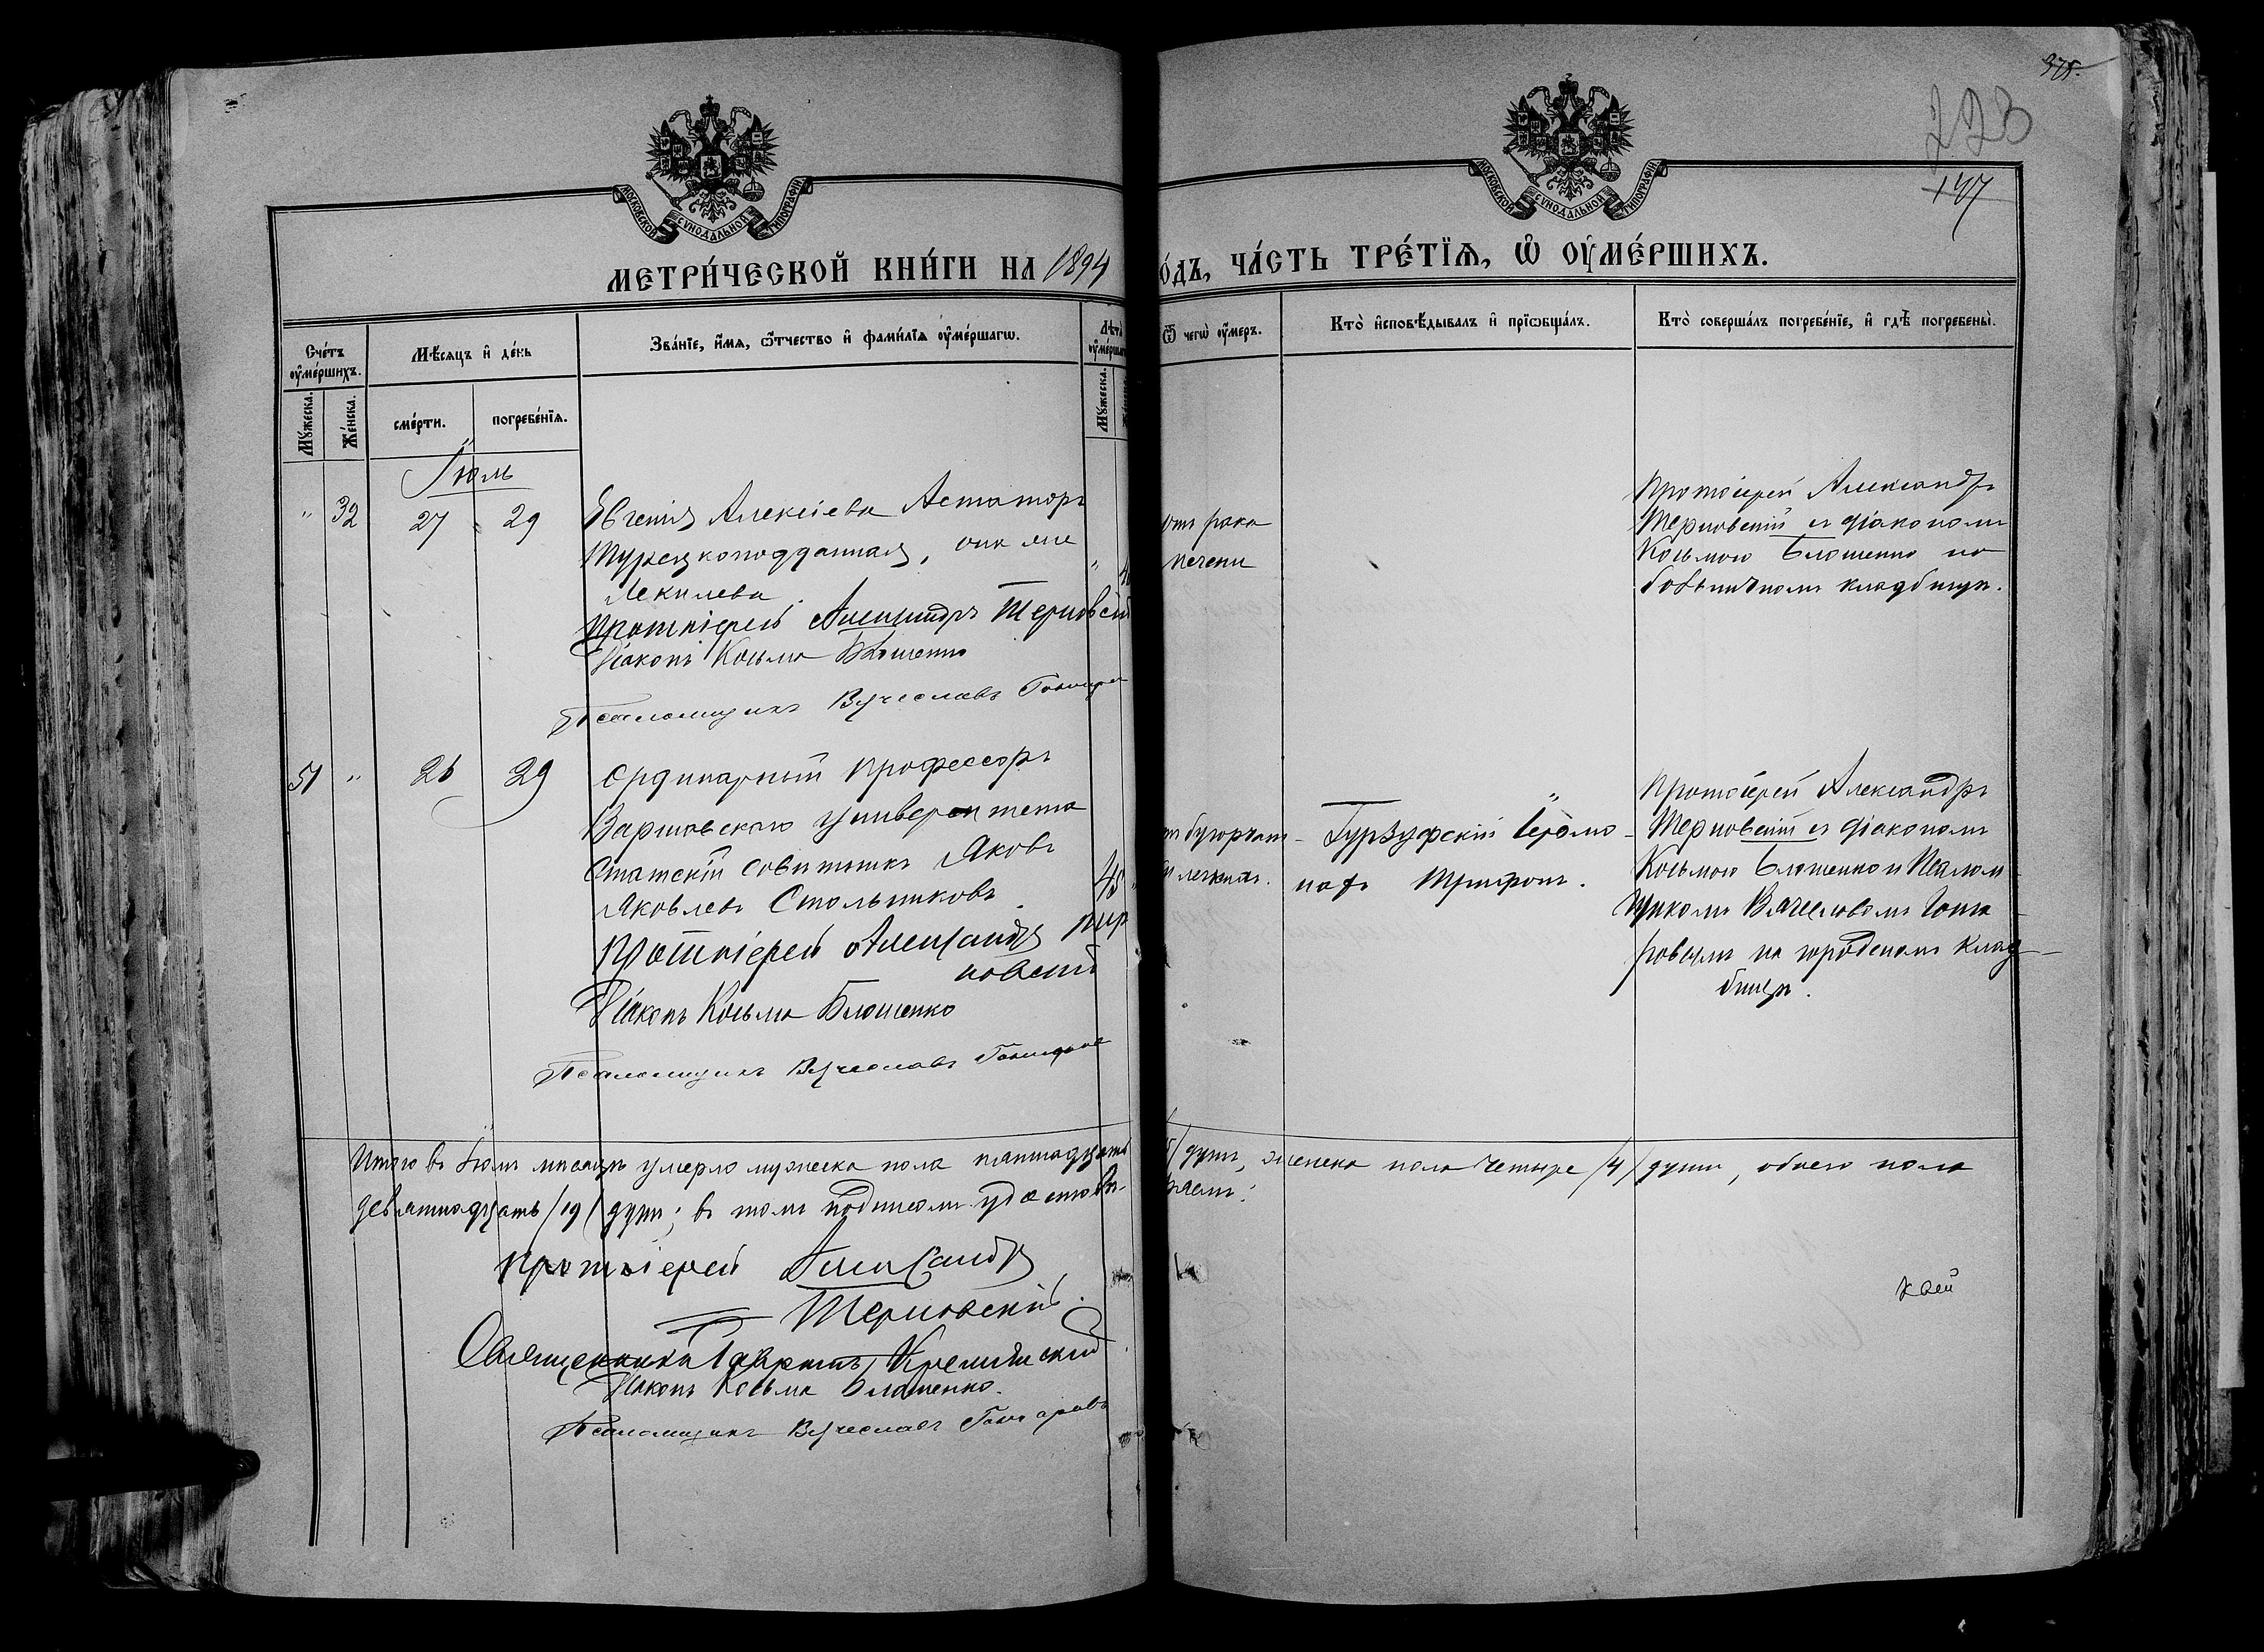 375.
223
147
МОСКОВСКОЙ СУНОДАЛЬНОЙ ТИПОГРАФІИ
МОСКОВСКОЙ СУНОДАЛЬНОЙ ТИПОГРАФІИ
МЕТРИ́ЧЕСКОЙ КНИ́ГИ НА 1894
О́ДЪ, ЧА́СТЬ ТРЕ́ТЇѦ, Ѡ҆ ОУ҆МЕ́РШИХЪ.
Сче́тъ оу҆ме́ршихъ.
Мꙋ́жеска.
Же́нска.
Мѣ́сяцъ и҆ де́нь
сме́рти.
погребе́нїѧ.
Зва́нїе, и҆́мѧ, ѻ҆́тчество и҆ фами́лїѧ оу҆ме́ршагѡ.
Лѣта̀ оу҆ме́ршаг
Мꙋ́жеска.
Ѿ чегѡ̀ оу҆́меръ.
Кто̀ и҆сповѣ́дывалъ и҆ прїѡбща́лъ.
Кто̀ соверша́лъ погребе́нїе, и҆ гдѣ̀ погребены̀.
Іюль
" 32 27 29 Евгенія Алексіева Астаторъ
Турецкоподданная, она же
Лекилева
Протоіерей Александръ Терновскій
Діаконъ Косьма Блошенко
Псаломщикъ Вячеславъ Гончаров
отъ рака
печени
Протоіерей Александръ
Терновскій съ діакономъ
Косьмою Блошенко на
кладбищѣ.
51 " 26 29 Ординарный профессоръ
Варшавскаго университета
Статскій совѣтникъ Яковъ
Яковлевъ Стольниковъ.
45
Протоіерей Александръ Тер
новскій
Діаконъ Косьма Блошенко
Псаломщикъ Вячеславъ Гончаровъ
тъ бугорчат-
легкихъ.
Гурзуфскій Іеромо-
нахъ Трифонъ.
Протоіерей Александръ
Терновскій съ діакономъ
Косьмою Блошенко и Псалом-
щикомъ Вячеславомъ Гонча-
ровымъ на городскомъ клад-
бищѣ.
Итого въ Іюлѣ мѣсяцѣ умерло мужеска пола пятнадцать
5/ душъ, женска пола четыре /4/ души, обоего пола
девятнадцать /19/ душъ; въ томъ подписомъ удостовѣ-
ряемъ:
Протоіерей Александръ
Терновскій.
Священника Гавріилъ
Діаконъ Косьма Блошенко.
Псаломщикъ Вячеславъ Гончаровъ